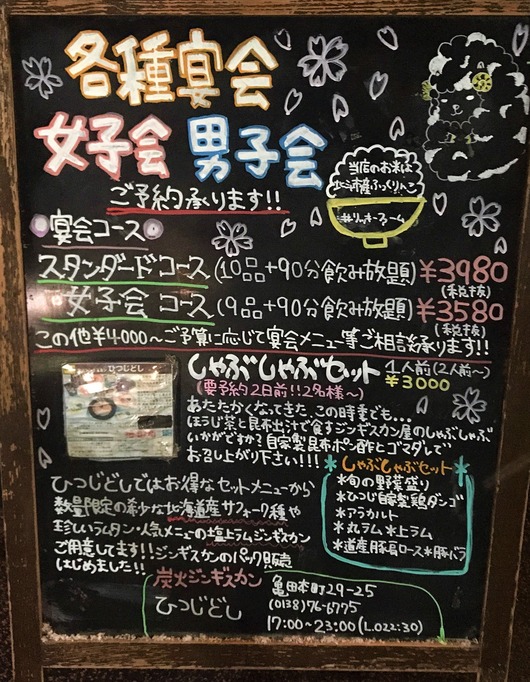 各種宴会
女子会 男子会
ご予約承ります!!
当店のお米は
北海道産ふっくりんこ
宴会コース
スタンダードコース(10品+90分飲み放題)¥3980
(税抜)
女子会 コース(9品+90分飲み放題)¥3580
(税抜)
この他¥4000〜ご予算に応じて宴会メニュー等ご相談承ります!!
ひつじどし
しゃぶしゃぶセット 1人前(2人前〜)
(要予約2日前!!2名様〜) ¥3000
あたたかくなってきた、この時季でも…
ほうじ茶と昆布出汁で食すジンギスカン屋のしゃぶしゃぶ
いかがですか?自家製昆布ポン酢とゴマダレで
お召し上がり下さい!!!
*しゃぶしゃぶセット*
*旬の野菜盛り
*ひつじ自家製鶏ダンゴ
*アラカルト
*丸ラム*上ラム
*道産豚肩ロース*豚バラ
ひつじどしではお得なセットメニューから
数量限定の希少な北海道産サフォーク種や
珍しいラムタン・人気メニューの塩上ラムジンギスカン
ご用意してます!!ジンギスカンのパック販売
はじめました!!
炭火ジンギスカン
ひつじどし
亀田本町29-25
(0138)76-6775
17:00〜23:00(L.O22:30)